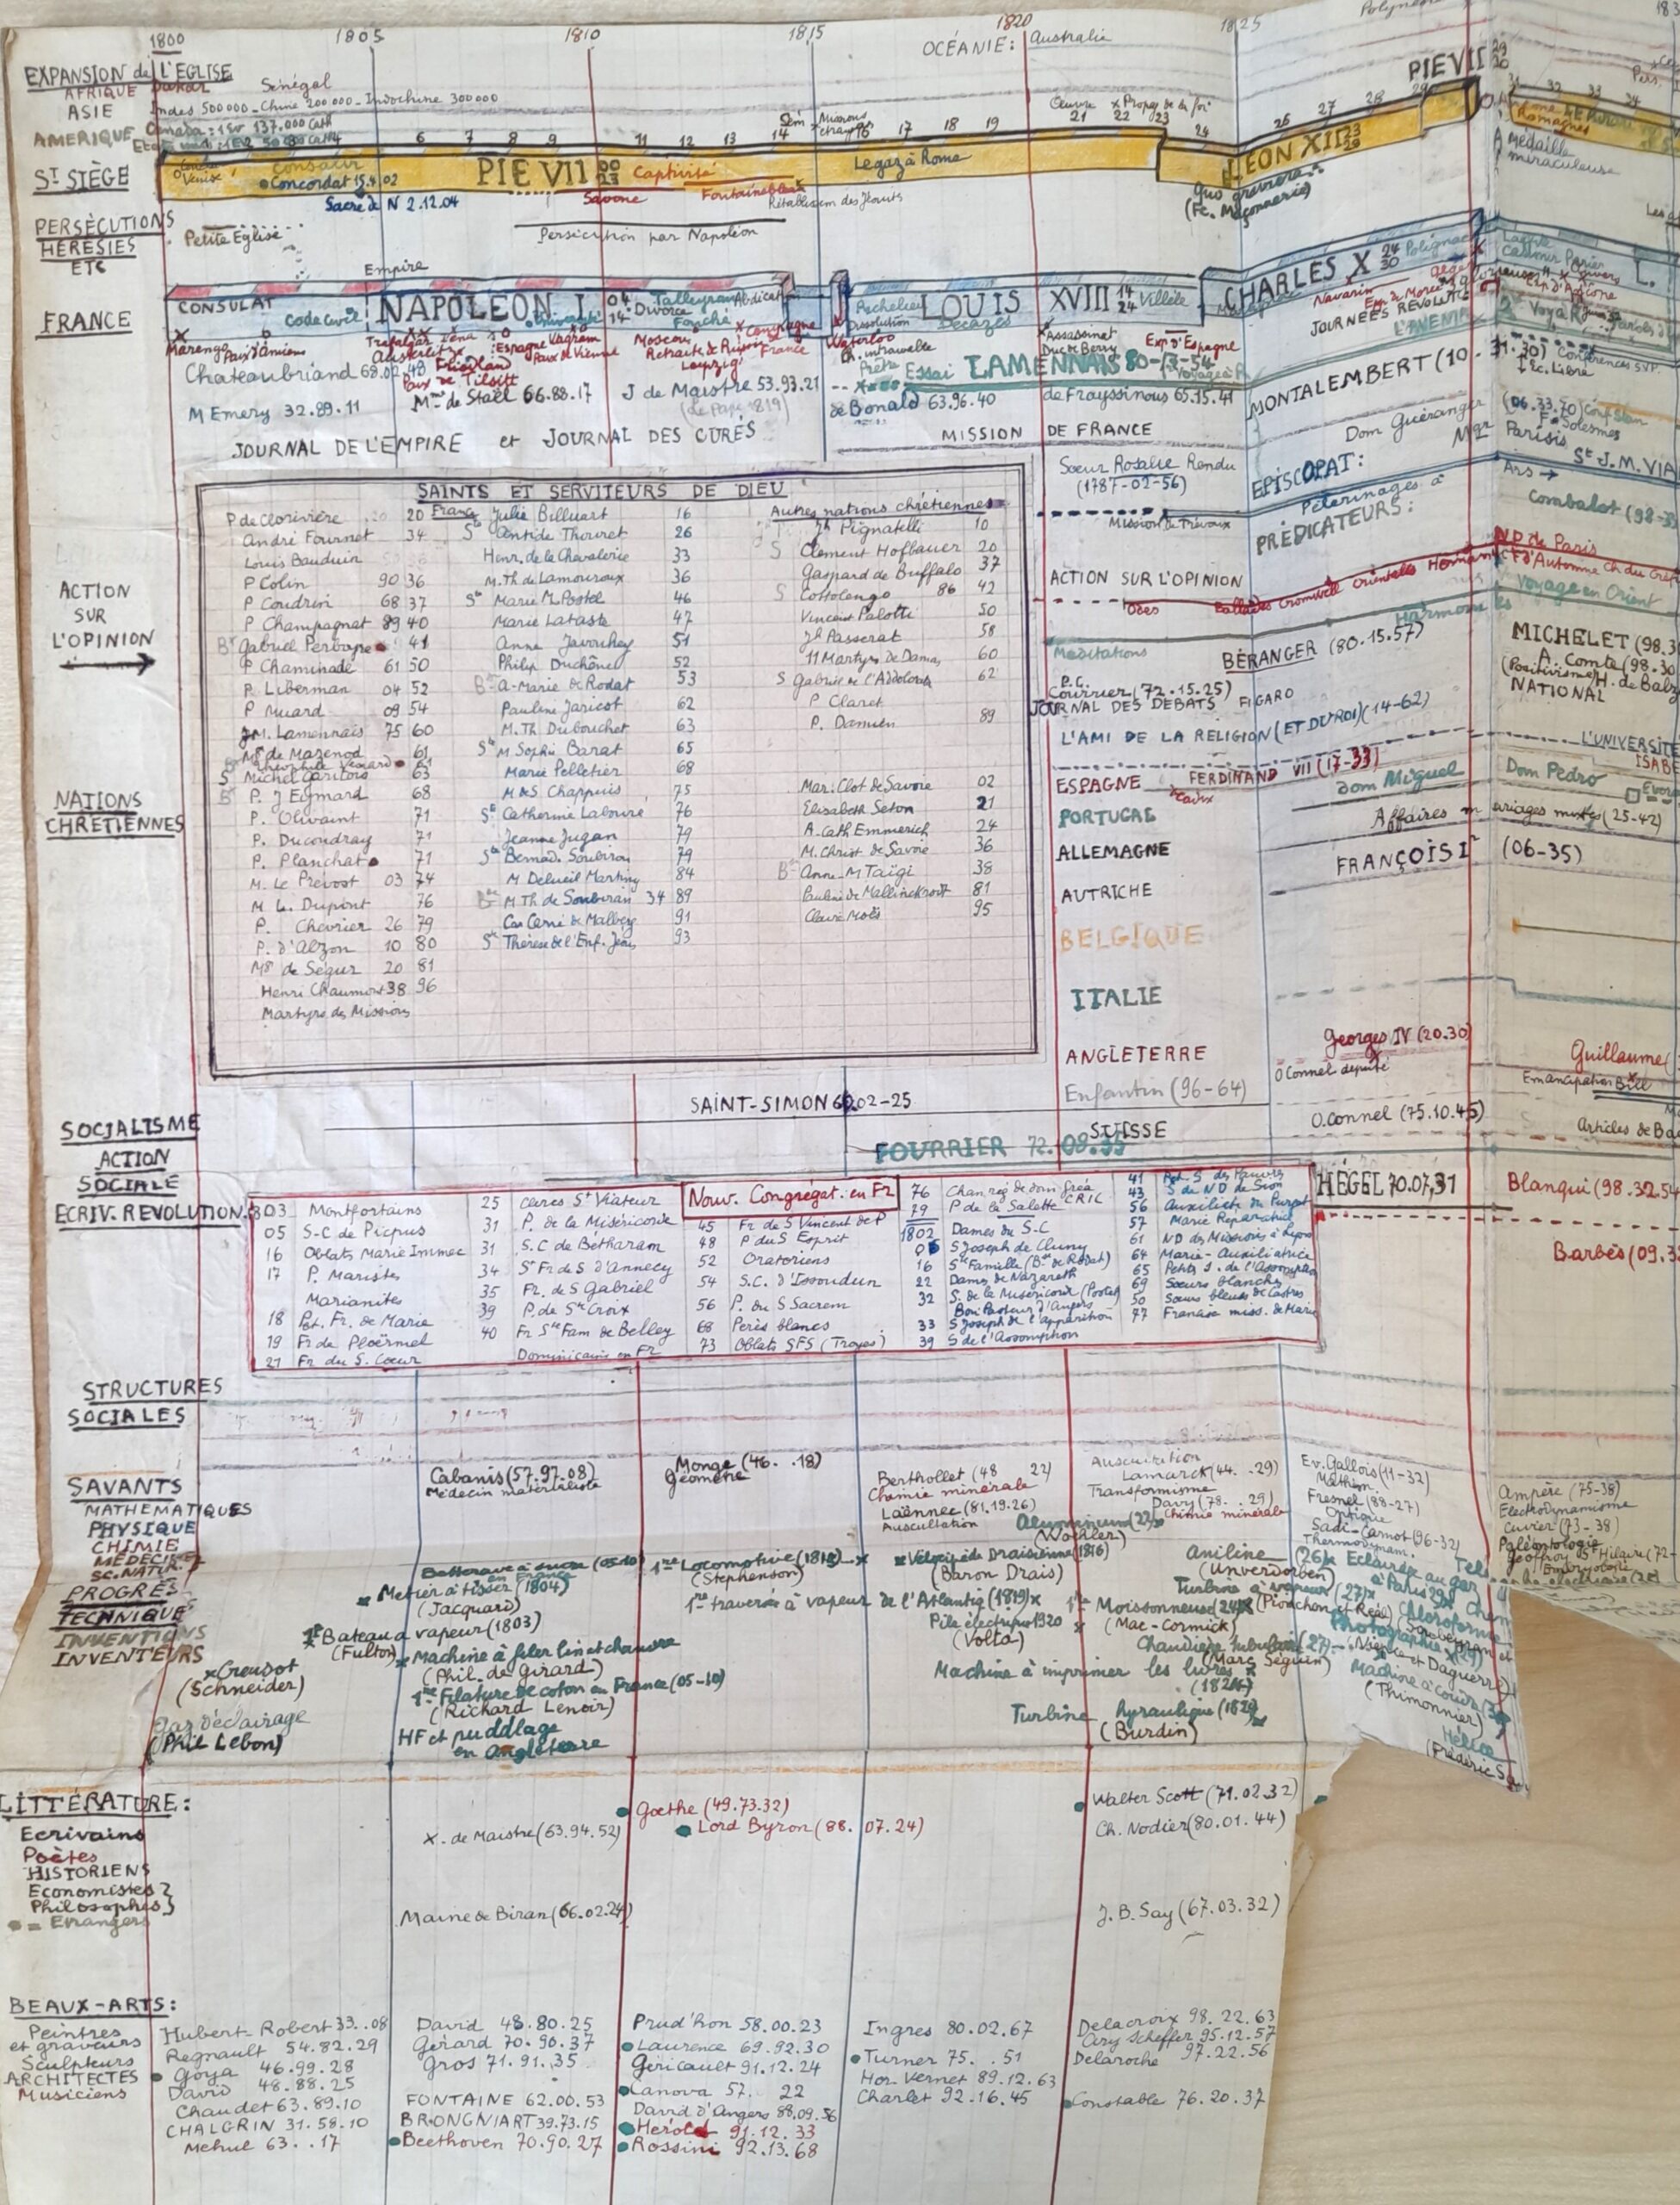 1800 1805 1810 1815 1820 1825
OCÉANIE: Australie
EXPANSION de L'EGLISE
AFRIQUE Dakar Sénégal
ASIE Indes 500 000 - Chine 200 000 - Indochine 300 000
AMERIQUE Canada: 137.000 Cath
6 7 8 9 11 12 13 14 16 17 18 19 21 22 23 24 25 27 28
Œuvre x Propag de la foi
ST SIÈGE
Concordat 15.4.02
PIE VII 00 23
Captivité
Legaz à Rome
LEON XII 23 29
PIE VII
Sacre de N 2.12.04
Savone
Fontainebleau
Rétablissem des Jésuits
Quo graviora
(Fc. Maçonnerie)
médaille miraculeuse
PERSÉCUTIONS
HÉRÉSIES
ETC
Petite Eglise
Persécution par Napoléon
Empire
FRANCE
CONSULAT
Code Civil
NAPOLEON I 04 14
Divorce
Talleyrand
Fouché
Abdicat
Richelieu
Dissolution
LOUIS XVIII 14 24
Decazes
Villèle
CHARLES X 24 30
Polignac
Navarin
Exp. de Morée
JOURNÉES REVOLUT
L'AVENIR
Marengo
Paix d'Amiens
Trafalgar
Iéna
Austerlitz
Friedland
Paix de Tilsitt
Espagne
Wagram
Paix de Vienne
Moscou
Retraite de Russie
Leipzig
Campagne France
Waterloo
Ch. introuvable
Assassinat
Duc de Berry
Exp. d'Espagne
Chateaubriand 68.02.48
Mme de Staël 66.88.17
J de Maistre 53.93.21
(Le Pape 1819)
Essai LAMENNAIS 80-17-54
M Emery 32.89.11
de Bonald 63.96.40
de Frayssinous 65.15.41
MONTALEMBERT (10.31.70)
Conférences SVP.
Ec. Libre
JOURNAL DE L'EMPIRE et JOURNAL DES CURÉS
MISSION DE FRANCE
Dom Guéranger
Solesmes
Mgr Parisis
Sœur Rosalie Rendu
(1787-02-56)
EPISCOPAT:
St J.M. VIA
Ars →
Mission de Trévoux
Pélerinages à
PRÉDICATEURS:
Combalot (98-
SAINTS ET SERVITEURS DE DIEU
France
P de Clorivière 20
André Fournet 34
Louis Bauduin
P Colin 90 36
P Coudrin 68 37
P Champagnat 89 40
Bx Gabriel Perboyre 41
P Chaminade 61 50
P. Liberman 04 52
P Muard 09 54
JM. Lamennais 75 60
Mgr de Mazenod 61
Théophile Venard 61
S Michel Garitois 63
Bx P. J Eymard 68
P. Olivaint 71
P. Ducoudray 71
P. Planchat 71
M. Le Prévost 03 74
M L. Dupont 76
P. Chevrier 26 79
P. d'Alzon 10 80
Mgr de Ségur 20 81
Henri Chaumont 38 96
Martyrs des Missions
Julie Billiart 16
Ste Antide Thouret 26
Henr. de la Chevalerie 33
M. Th de Lamouroux 36
Ste Marie M. Postel 46
Marie Lataste 47
Anne Javouhey 51
Philip. Duchêne 52
Bse A-Marie de Rodat 53
Pauline Jaricot 62
M. Th Dubouchet 63
Ste M Sophie Barat 65
Marie Pelletier 68
M de S. Chappuis 75
Ste Catherine Labouré 76
Jeanne Jugan 79
Ste Bernad. Soubirou 79
M Deluil Martiny 84
Bse M Th de Soubiran 34 89
Ste Thérèse de l'Enf. Jésus 93
Autres nations chrétiennes
Jh Pignatelli 10
S Clement Hofbauer 20
Gaspard de Buffalo 37
S Cottolengo 86 42
Vincent Palotti 50
Jh Passerat 58
11 Martyrs de Damas 60
S Gabriel de l'Addolorata 62
P Claret
P. Damien 89
Mar. Clot de Savoie 02
Elisabeth Seton 21
A. Cath Emmerich 24
M. Christ de Savoie 36
Bse Anne-M Taïgi 38
Pauline de Mallinckrodt 81
Claire Moës 95
ACTION SUR L'OPINION
ACTION
SUR
L'OPINION
Odes
Ballades Cromwell Orientales Hernani
ND de Paris
F. d'Automne Ch. du Crép
Harmonies
Voyage en Orient
Méditations
BÉRANGER (80.15.57)
MICHELET (98.3
A. Comte (98.30
(Positivisme) H. de Balz
NATIONAL
P.L. Courrier (72.15.25)
JOURNAL DES DÉBATS FIGARO
L'AMI DE LA RELIGION (ET DU ROI) (14-62)
L'UNIVERSITE
NATIONS
CHRETIENNES
ESPAGNE FERDINAND VII (17-33)
ISABE
PORTUGAL Dom Miguel Dom Pedro
ALLEMAGNE Affaires mariages mixtes (25-42)
AUTRICHE FRANÇOIS I (06-35)
BELGIQUE
ITALIE
ANGLETERRE
Georges IV (20.30)
O Connel député
Guillaume
Emancipation Bill
Enfantin (96-64)
O.Connel (75.10.45)
SUISSE
SOCIALISME
ACTION
SOCIALE
ECRIV. REVOLUTION.
SAINT-SIMON 60.02-25
FOURRIER 72.08.35
HÉGEL 70.07,31
Blanqui (98.32.54
Barbès (09.3
Nouv. Congrégat. en Fr
803 Montfortains
05 S-C de Picpus
16 Oblats Marie Immac
17 P. Maristes
Marianites
18 Pet. Fr. de Marie
19 Fr de Ploërmel
21 Fr du S. Cœur
25 Clercs St Viateur
31 P. de la Miséricorde
31 S.C de Bétharam
34 St Fr de S d'Annecy
35 Fr. de S Gabriel
39 P. de Ste Croix
40 Fr Ste Fam de Belley
Dominicains en Fr
45 Fr de S Vincent de P
48 P du S Esprit
52 Oratoriens
54 S.C. d'Issoudun
56 P. du S Sacrem
68 Pères blancs
73 Oblats SFS (Troyes)
76 Chan. rég de dom Gréa CRIC
79 P de la Salette
1802 Dames du S.C
05 S Joseph de Cluny
16 Ste Famille (Bse de Rodat)
22 Dames de Nazareth
32 S. de la Miséricord (Postel)
Bon Pasteur d'Angers
33 S Joseph de l'apparition
39 S de l'Assomption
41 Pet. S des Pauvres
43 S de ND de Sion
56 Auxiliat. du Purgat
57 Marie Réparatrice
61 ND des Missions à Lyon
64 Marie-Auxiliatrice
65 Petites S. de l'Assomption
69 Sœurs blanches
50 Sœurs bleues de Castres
77 Francisc miss. de Marie
STRUCTURES
SOCIALES
SAVANTS
MATHEMATIQUES
PHYSIQUE
CHIMIE
MÉDECINE
SC. NATUR.
PROGRÈS
TECHNIQUES
INVENTIONS
INVENTEURS
Cabanis (57.97.08)
Médecin matérialiste
Monge (46. .18)
Géomètre
Berthollet (48 22)
Chimie minérale
Laënnec (81.19.26)
Auscultation
Auscultation
Lamarck (44. .29)
Transformisme
Davy (78. .29)
Chimie minérale
Ev. Gallois (11-32)
Mathém.
Fresnel (88-27)
Optique
Sadi-Carnot (96-32)
Thermodynam.
Ampère (75-38)
Electrodynamisme
Cuvier (73-38)
Paléontologie
Geoffroy St Hilaire (72-
Embryologie
Aluminium (27)
(Wöhler)
Betterave à sucre (05-10)
en France
1re Locomotive (1815)
(Stephenson)
Vélocipède Draisienne (1816)
(Baron Drais)
Aniline (26)
(Unverdorben)
Eclairage au gaz
à Paris 29
Métier à tisser (1804)
(Jacquard)
1re traversée à vapeur de l'Atlantiq (1819)
Turbine à vapeur (27)
1re Moissonneuse (24)
(Mac-Cormick)
Chloroforme
Pile électrique 1920
(Volta)
1er Bateau à vapeur (1803)
(Fulton)
Machine à filer lin et chanvre
(Phil. de Girard)
Chaudière tubulaire (27)
(Marc Séguin)
Photographie (29)
(Niepce et Daguerre)
Creusot
(Schneider)
1re Filature de coton en France (05-10)
(Richard Lenoir)
Machine à imprimer les livres
Machine à coudre
(Thimonnier)
Gaz d'éclairage
(Phil Lebon)
HF et puddlage
en Angleterre
Turbine hydraulique
(Burdin)
Hélice
LITTÉRATURE:
Ecrivains
Poètes
HISTORIENS
Economistes
Philosophes
● = Etrangers
X. de Maistre (63.94.52)
Goethe (49.73.32)
Lord Byron (88. 07.24)
Walter Scott (71.02.32)
Ch. Nodier (80.01.44)
Maine de Biran (66.02.24)
J.B. Say (67.03.32)
BEAUX-ARTS:
Peintres
et graveurs
Sculpteurs
ARCHITECTES
Musiciens
Hubert-Robert 33..08
Regnault 54.82.29
Goya 46.99.28
David 48.88.25
Chaudet 63.89.10
CHALGRIN 31.58.10
Mehul 63..17
David 48.80.25
Gérard 70.90.37
Gros 71.91.35
FONTAINE 62.00.53
BRONGNIART 39.73.15
Beethoven 70.90.27
Prud'hon 58.00.23
Laurence 69.92.30
Géricault 91.12.24
Canova 57. 22
David d'Angers 88.09.56
Herold 91.12.33
Rossini 92.13.68
Ingres 80.02.67
Turner 75. .51
Hor. Vernet 89.12.63
Charlet 92.16.45
Delacroix 98.22.63
Ary Scheffer 95.12.57
Delaroche 97.22.56
Constable 76.20.37